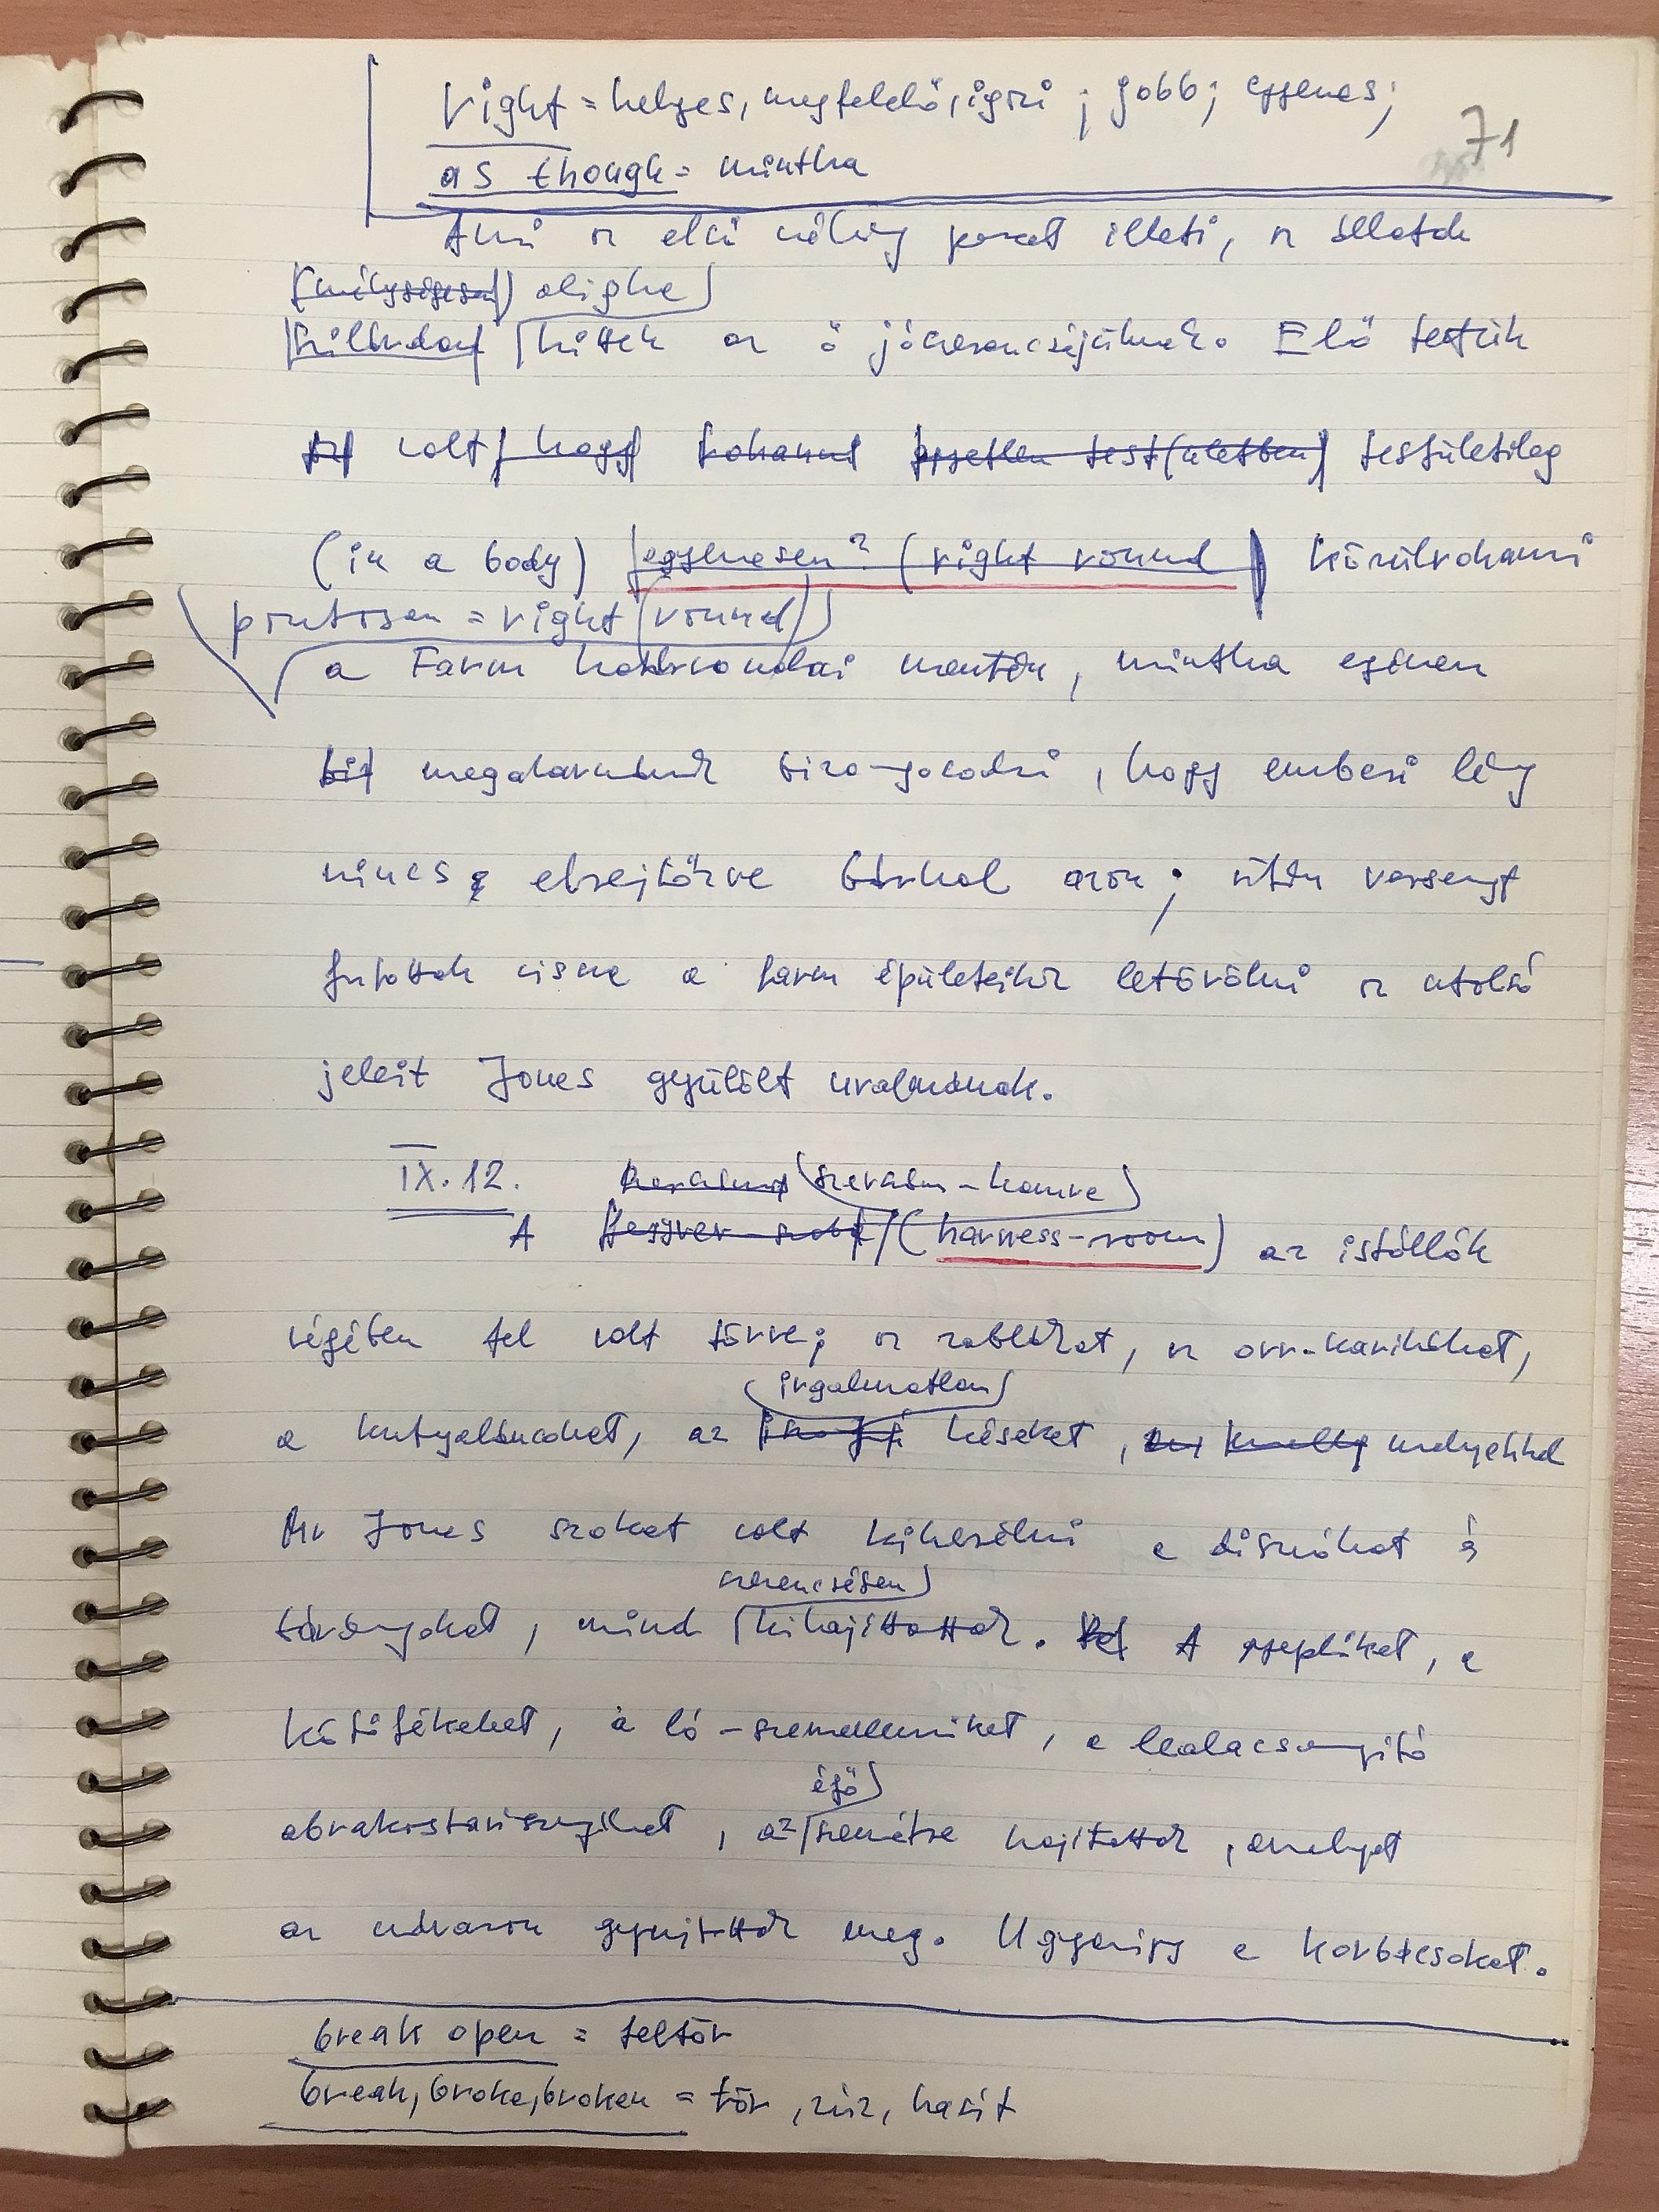 right = helyes, megfelelő, igazi ; jobb; egyenes;
71
as though = mintha
Ami az első néhány percet illeti, az állatok
alighe
hittek az ő jószerencséjüknek. Első tettük
volt, hogy rohanni testületileg
(in a body) egyenesen? (right round) körülrohanni
pontosan = right (round)
a Farm határvonalai mentén, mintha egészen
megakarnának bizonyosodni, hogy emberi lény
nincs elrejtőzve bárhol azon; után versengt
futottak vissza a farm épületeihez letörölni az utolsó
jeleit Jones gyűlölt uralmának.
IX. 12. szerszám-kamra
A (harness-room) az istállók
végében fel volt törve; a zablákat, az orr-karikákat,
irgalmatlan
a kutyaláncokat, az késeket, melyekkel
Mr Jones szokot volt kiherélni a disznókat és
szerencsésen
bárányokat, mind kihajították. A gyeplőket, a
kötőfékeket, a ló-szemellenzőket, a lealacsonyító
égő
abrakostarisznyákat, az szemétre hajították, amelyet
az udvaron gyujtottak meg. Ugyanígy a korbácsokat.
break open = feltör
break, broke, broken = tör, zúz, hasít